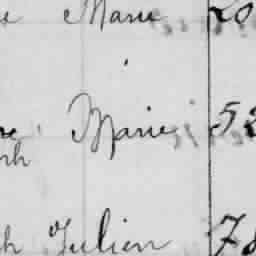 e Marie 20
re Marie 52
ph
ph Julien 78